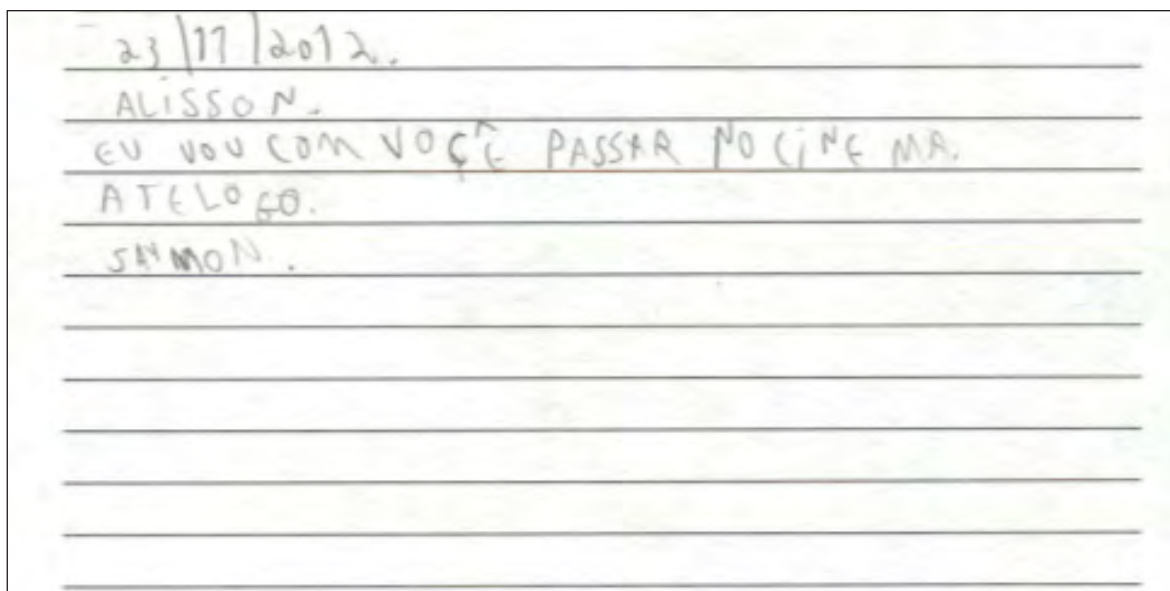 23/11/2012.
ALISSON.
EU VOU COM VOÇÊ PASSAR NO CINEMA.
ATELOGO.
SAYMON.